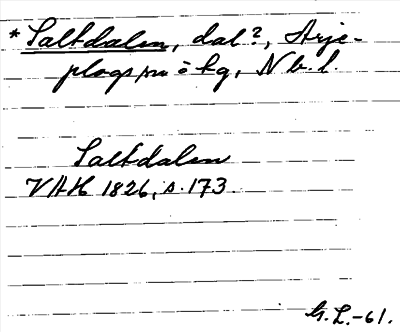 *Saltdalen, dal?, Arje-
plogs sn o tg, Nb. l.
Saltdalen
VAH 1826, s. 173.
G.L.-61.